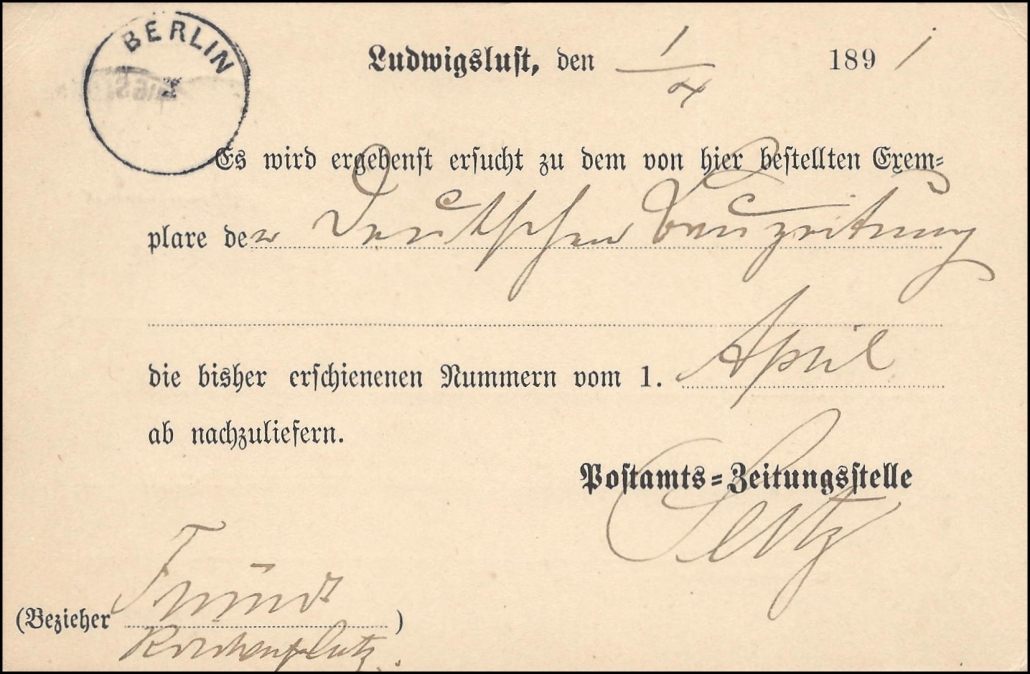 BERLIN
Ludwigslust, den 1/4 1891
Es wird ergebenst ersucht zu dem von hier bestellten Exem-
plare der Deutschen Bauzeitung
die bisher erschienenen Nummern vom 1. April
ab nachzuliefern.
Postamts-Zeitungsstelle
Seitz
(Bezieher Fründt)